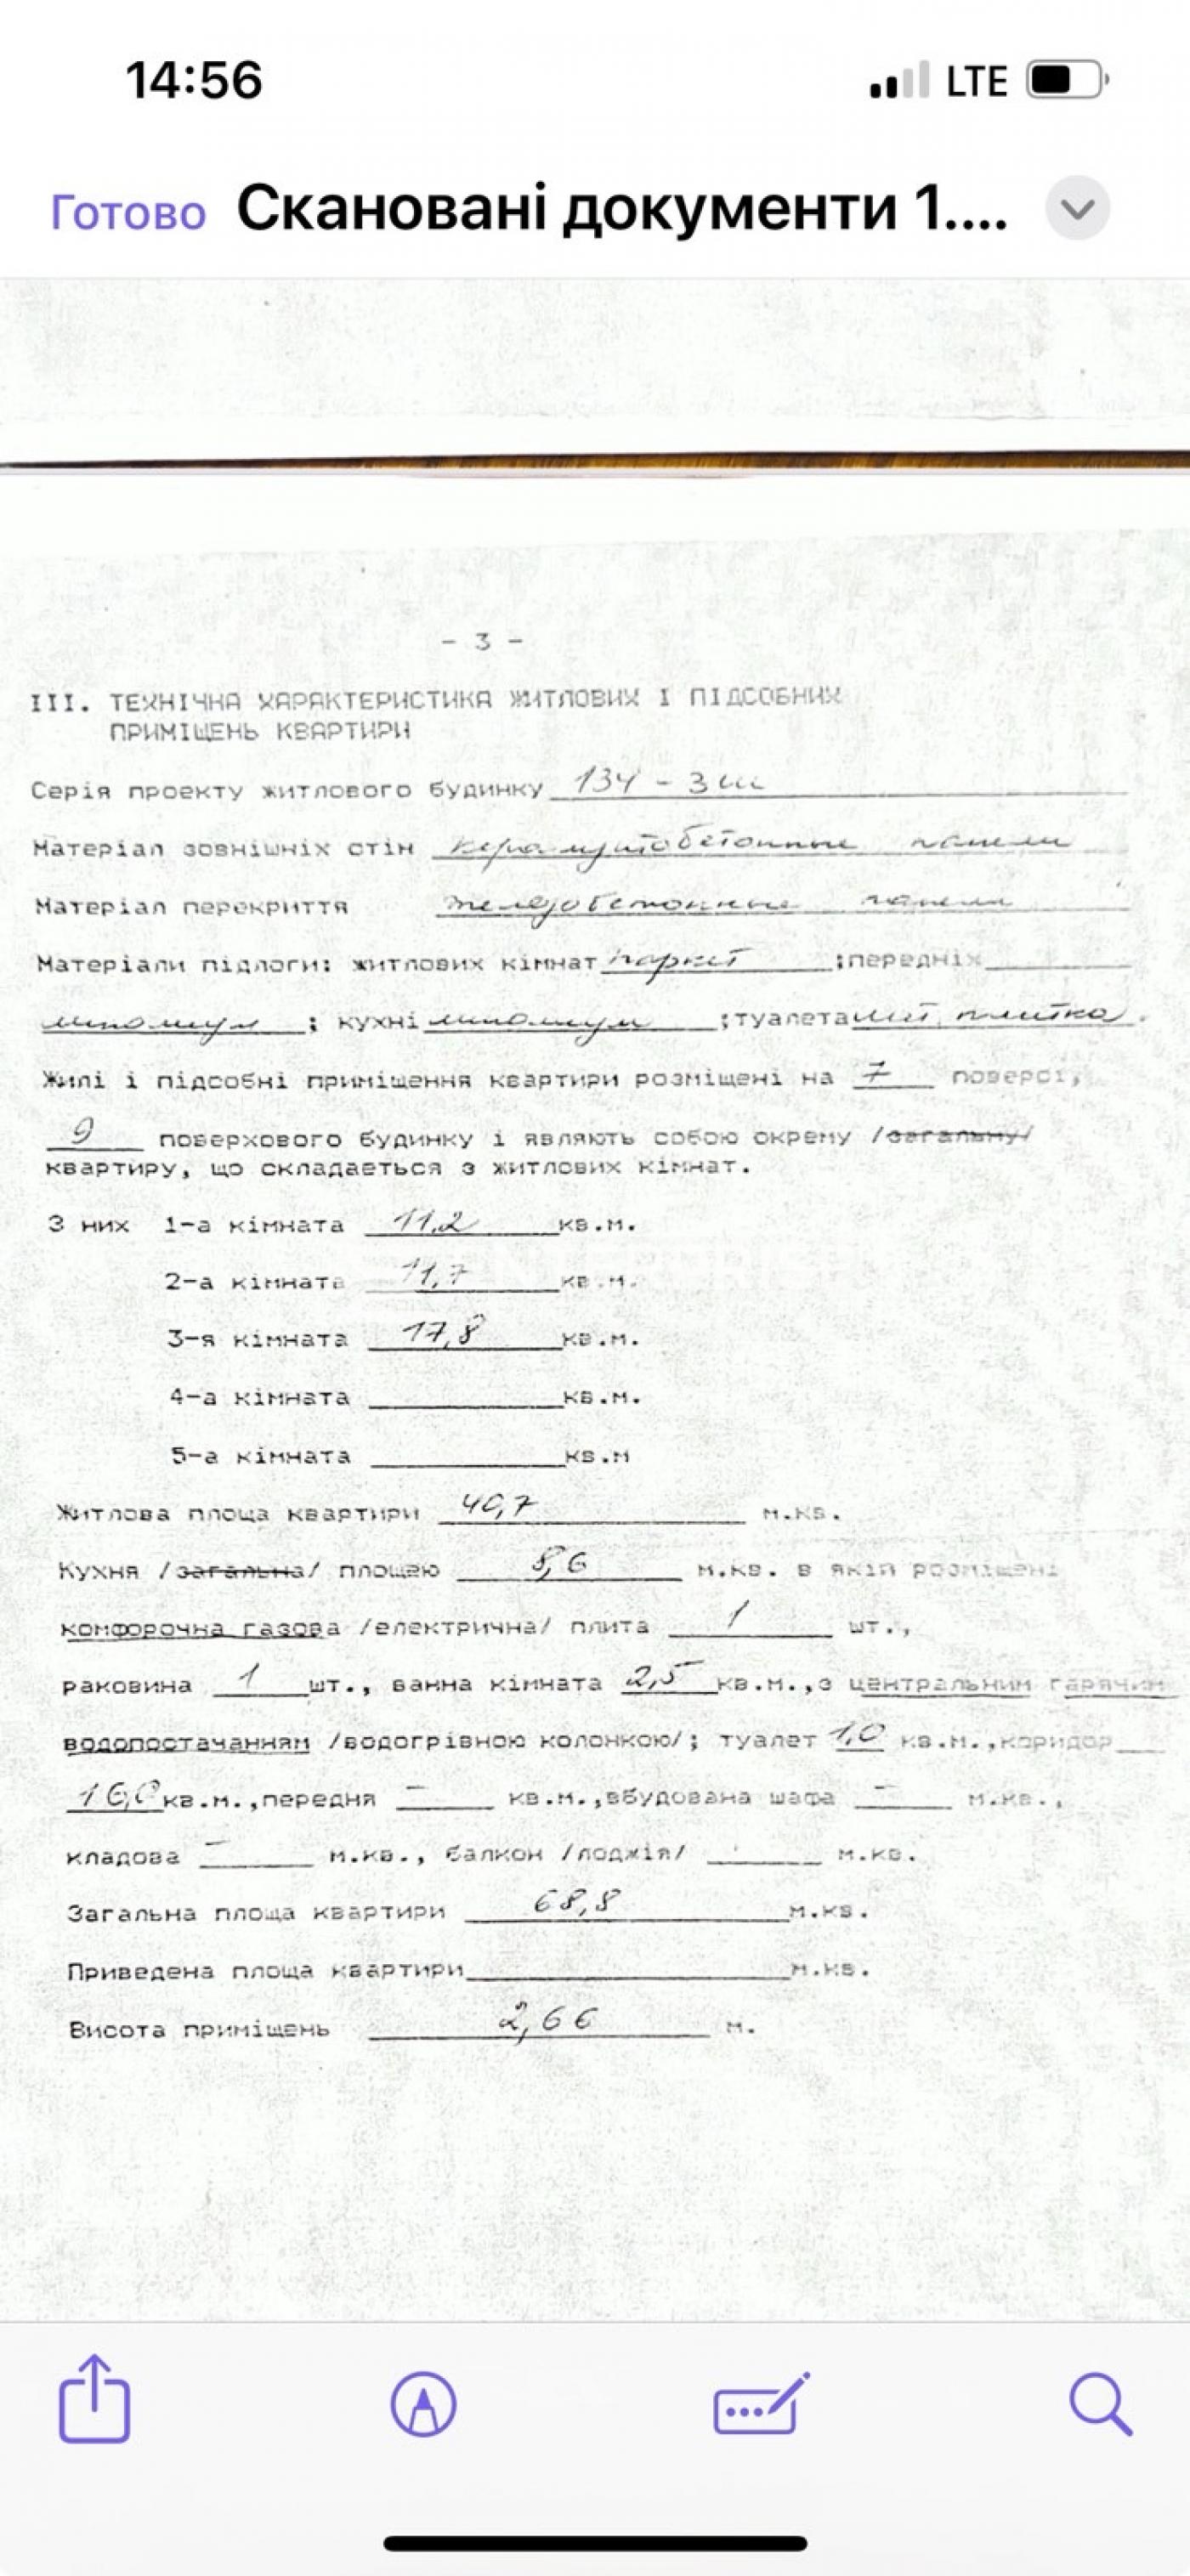 14:56
LTE
Готово Скановані документи 1....
- 3 -
III. ТЕХНІЧНА ХАРАКТЕРИСТИКА ЖИТЛОВИХ І ПІДСОБНИХ
ПРИМІЩЕНЬ КВАРТИРИ
Серія проекту житлового будинку 134-3
Матеріал зовнішніх стін керамзитобетонные панели
Матеріал перекриття железобетонные панели
Матеріали підлоги: житлових кімнат паркет ;передніх
линолиум ; кухні линолиум ;туалета плитка.
Жилі і підсобні приміщення квартири розміщені на 7 поверсі,
9 поверхового будинку і являють собою окрему /загальну/
квартиру, що складається з житлових кімнат.
З них 1-а кімната 11,2 кв.м.
2-а кімната 11,7 кв.м.
3-я кімната 17,8 кв.м.
4-а кімната кв.м.
5-а кімната кв.м
Житлова площа квартири 40,7 м.кв.
Кухня /загальна/ площею 8,6 м.кв. в якій розміщені
комфорочна газова /електрична/ плита 1 шт.,
раковина 1 шт., ванна кімната 2,5 кв.м.,з центральним гарячим
водопостачанням /водогрівною колонкою/; туалет 1,0 кв.м.,коридор
16,0 кв.м.,передня - кв.м.,вбудована шафа - м.кв.,
кладова - м.кв., балкон /лоджія/ м.кв.
Загальна площа квартири 68,8 м.кв.
Приведена площа квартири м.кв.
Висота приміщень 2,66 м.